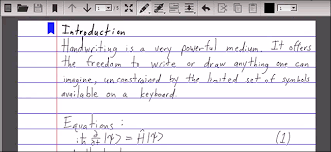 Introduction
Handwriting is a very powerful medium. It offers
the freedom to write or draw anything one can
imagine, unconstrained by the limited set of symbols
available on a keyboard
Equations :
iħ ∂/∂t |ψ⟩ = Ĥ|ψ⟩ (1)